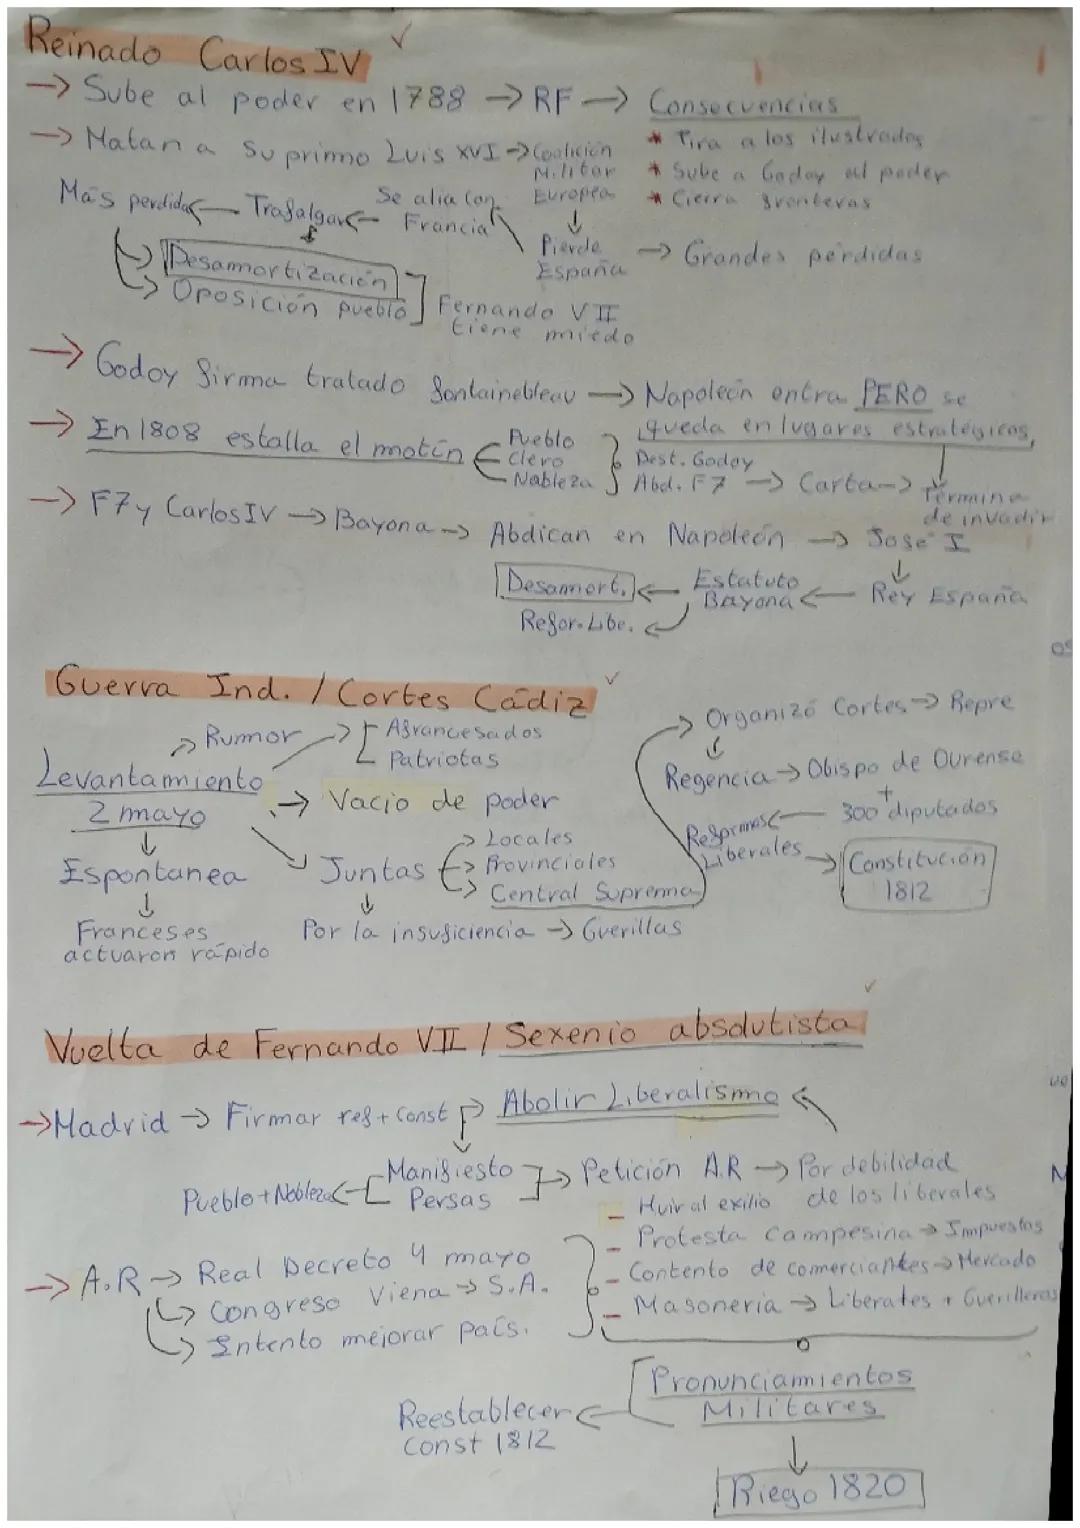 Reinado Carlos IV
-> Sube al poder en 1788 -> RF -> Consecuencias
* Tira a los ilustrados
* Sube a Godoy al poder
* Cierra fronteras
-> Matan a su primo Luis XVI -> Coalición Militar Europea
Pierde España -> Grandes pérdidas
Se alia con Francia
Trafalgar
Más perdidas
Desamortización
Oposición pueblo
Fernando VII tiene miedo
-> Godoy firma tratado fontainebleau -> Napoleón entra PERO se
queda en lugares estratégicos,
-> En 1808 estalla el motín
Pueblo
Clero
Nobleza
Dest. Godoy
Abd. F7 -> Carta ->
Termina de invadir
-> F7 y Carlos IV -> Bayona -> Abdican en Napoleón -> José I
Rey España
Estatuto Bayona
Desamort.
Refor. Libe.
Guerra Ind. / Cortes Cádiz
Levantamiento 2 mayo
Rumor
Afrancesados
Patriotas
-> Vacio de poder
Juntas
-> Locales
-> Provinciales
-> Central Suprema
Espontanea
Franceses actuaron rápido
Por la insuficiencia -> Guerillas
-> Organizó Cortes -> Repre
Regencia -> Obispo de Ourense
+
300 diputados
Reformas Liberales
Constitución 1812
Vuelta de Fernando VII / Sexenio absolutista
-> Madrid -> Firmar ref + Const
Abolir Liberalismo
Manifiesto Persas
Pueblo + Nobleza
-> Petición A.R -> Por debilidad de los liberales
-> A.R -> Real Decreto 4 mayo
-> Congreso Viena -> S.A.
-> Intento mejorar país.
- Huir al exilio
- Protesta campesina -> Impuestos
- Contento de comerciantes -> Mercado
- Masonería -> Liberales + Guerilleros
Pronunciamientos Militares
Reestablecer Const 1812
Riego 1820